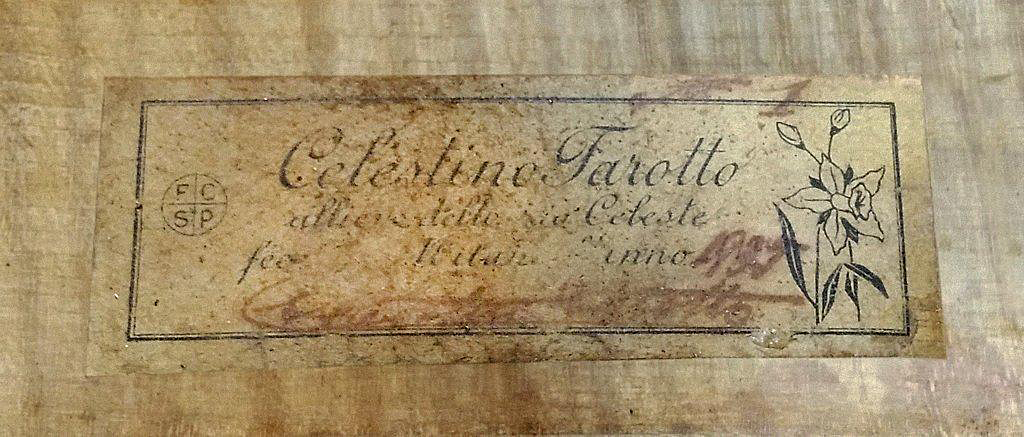 Celestino Farotto
allievo dello zio Celeste
fece Milano anno
F C
S P